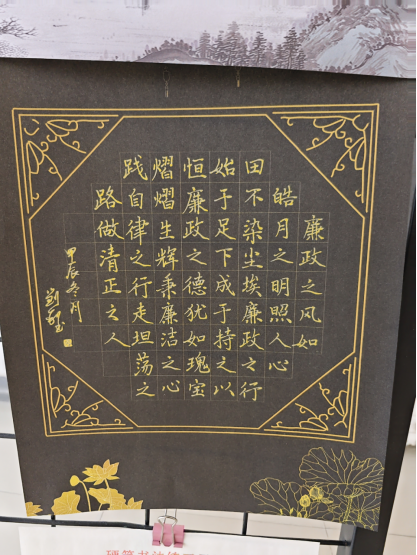 廉政之风如
皓月之明照人心
田不染尘埃廉政之行
始于足下成于持之以
恒廉政之德犹如瑰宝
熠熠生辉秉廉洁之心
践自律之行走坦荡之
路做清正之人
甲辰冬月